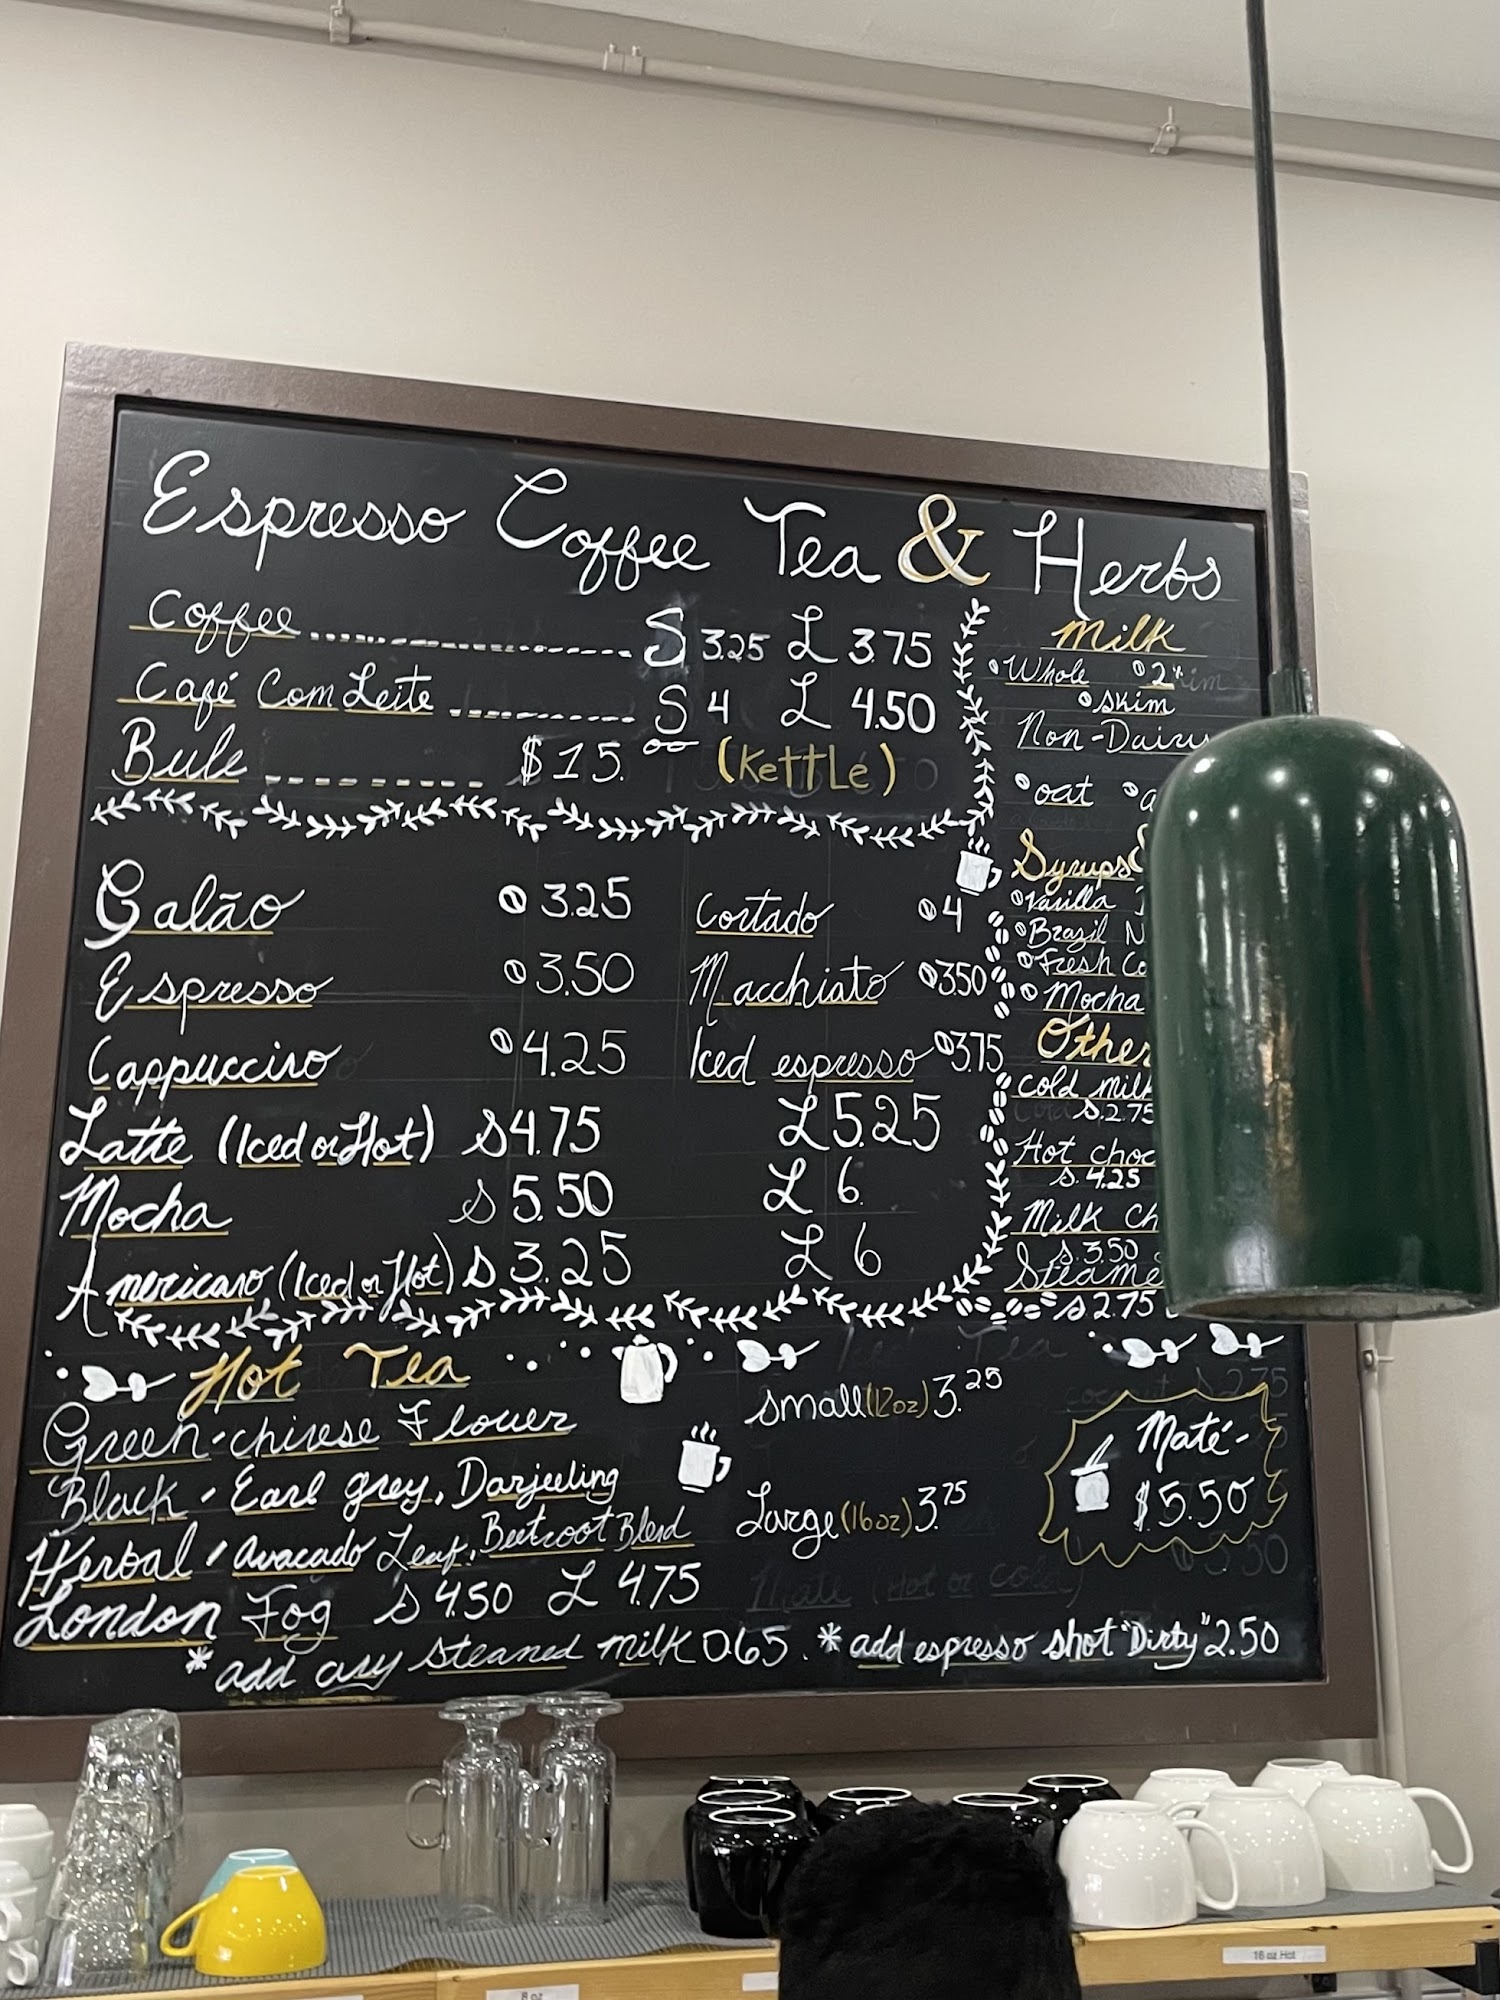 Espresso Coffee Tea & Herbs
Coffee S 3.25 L 3.75
Café Com Leite S 4 L 4.50
Bule $15.00 (Kettle)
Galão 3.25
Espresso 3.50
Cappuccino 4.25
Cortado 4
Macchiato 3.50
Iced espresso 3.75
Latte (Iced or Hot) S 4.75 L 5.25
Mocha S 5.50 L 6.
Americano (Iced or Hot) S 3.25 L 6
Milk
Whole 2%
Skim
Non-Dairy
oat
Syrups
Vanilla
Brazil
Fresh
Mocha
Other
cold milk
S. 2.75
Hot choc
S. 4.25
Milk
S. 3.50
Steame
S 2.75
Hot Tea
Green-chinese Flower
Black - Earl grey, Darjeeling
Herbal - Avacado Leaf, Beetroot Blend
London Fog S 4.50 L 4.75
small (12oz) 3.25
Large (16oz) 3.75
Maté-
$5.50
*add any steamed milk 0.65. *add espresso shot "Dirty" 2.50
8 oz
16 oz Hot